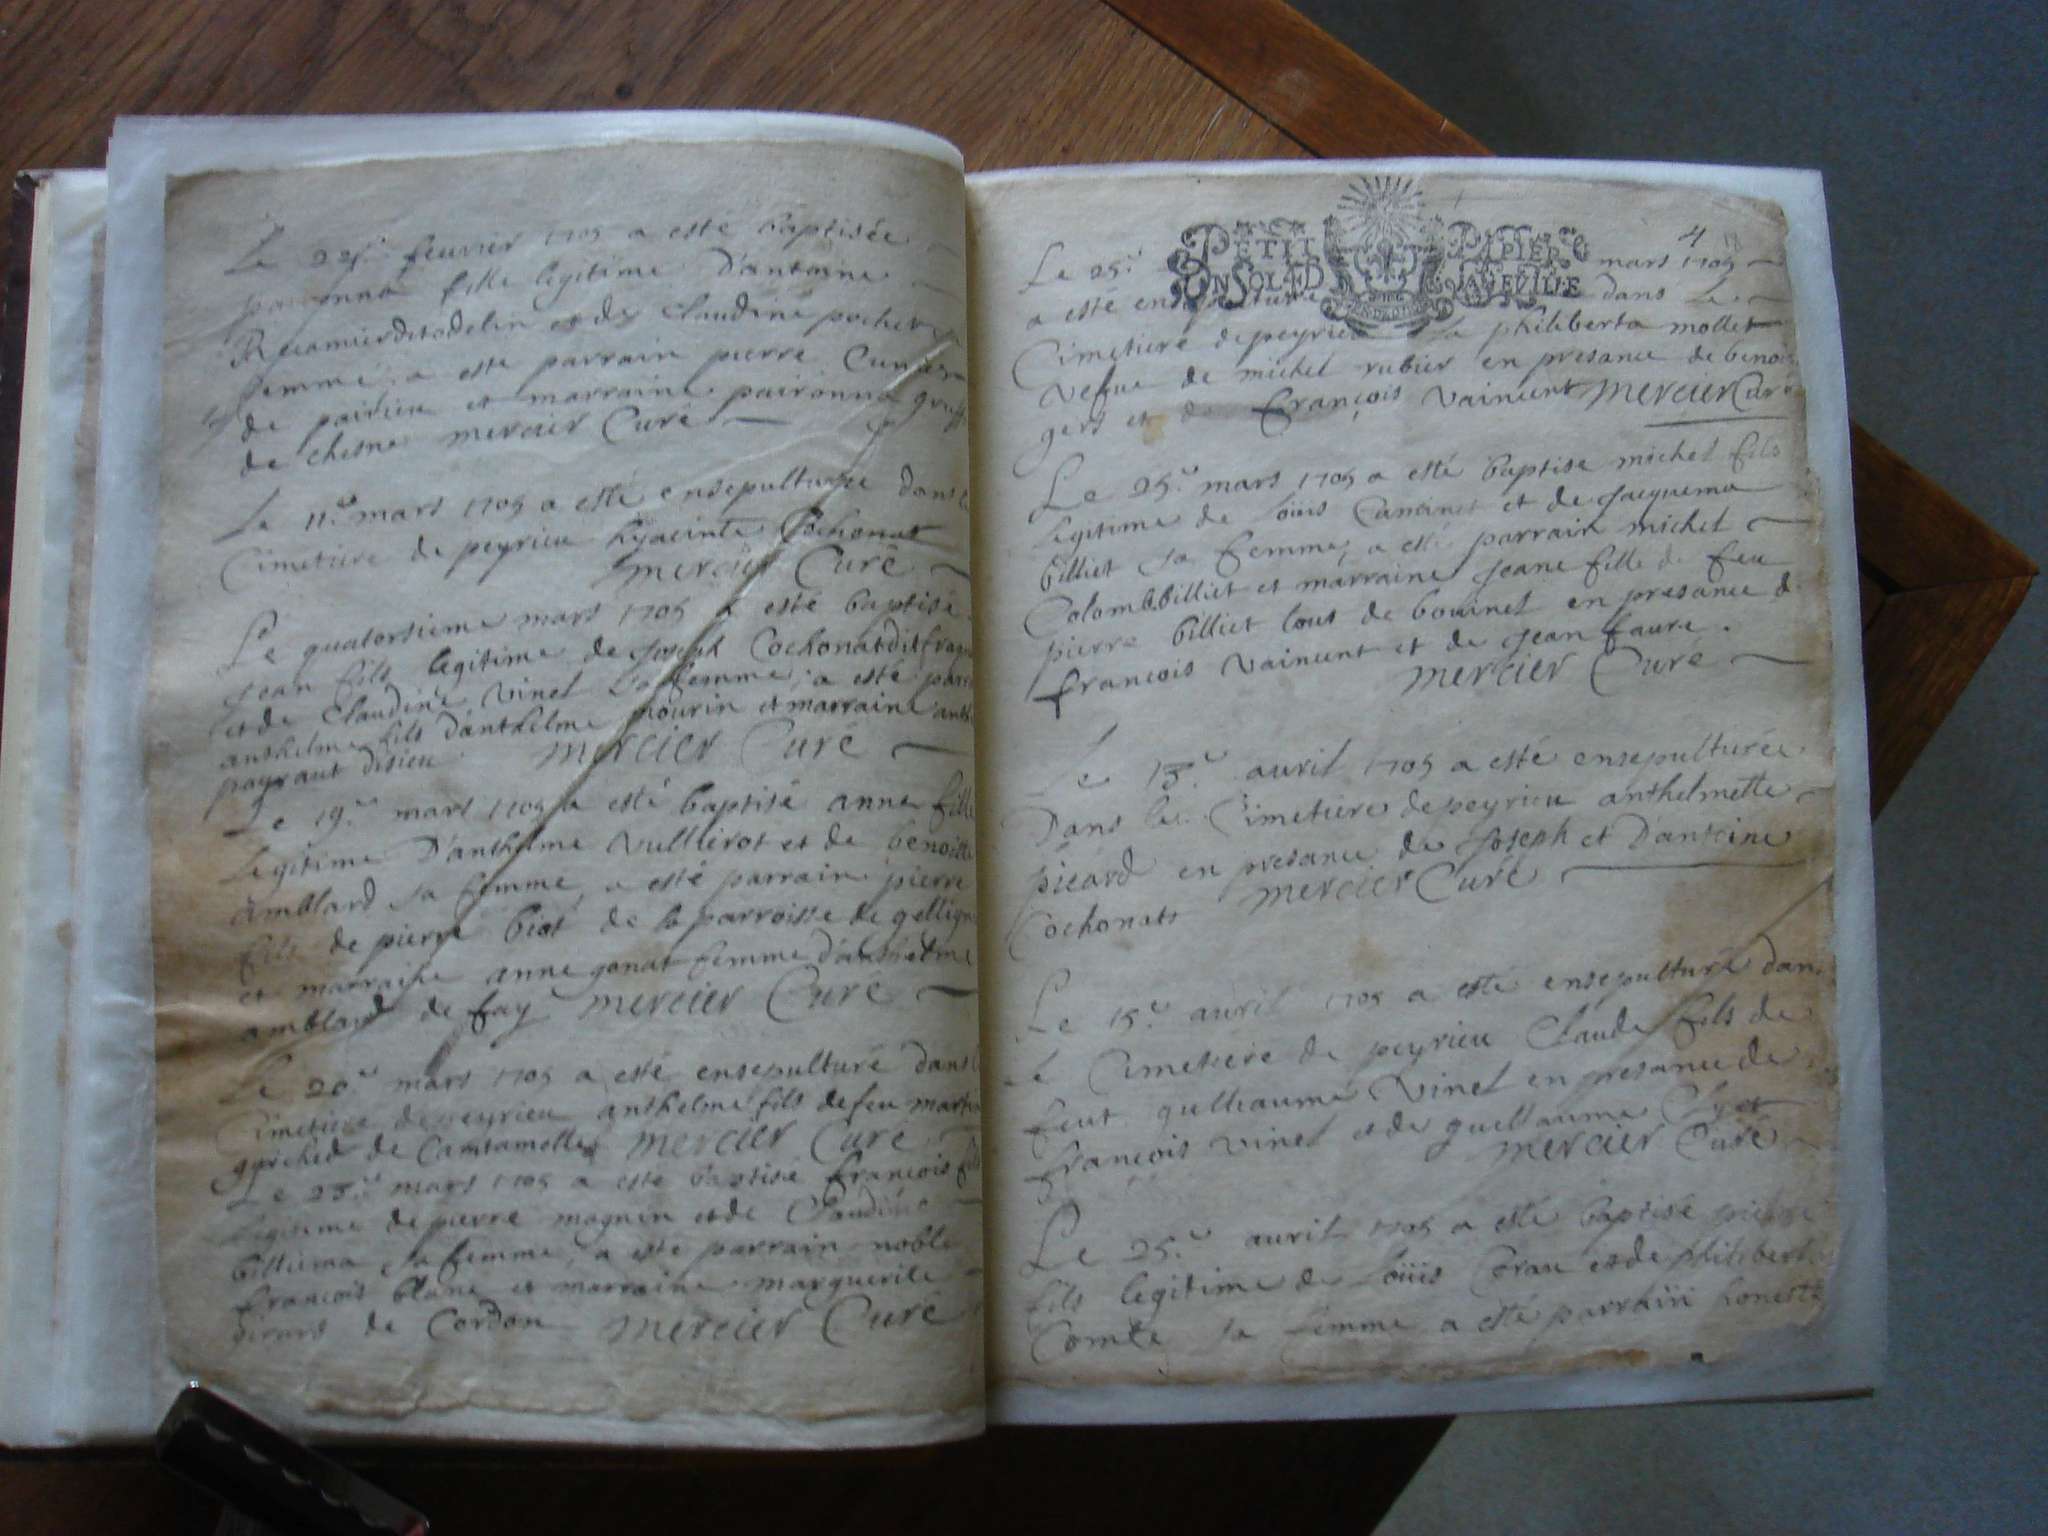 Le feurier 1705 a esté baptisée
fille legitime D'antoine
et de Claudine pochet
femme, a esté parrain pierre
de et marraine paironna
de Chesne mercier Curé
Le 11e mars 1705 a esté ensepulturé dans le
Cimetiere de peyrieu hyacinte Cochonat
mercier Curé
Le quatorsieme mars 1705 a esté baptisé
Jean fils legitime de Joseph Cochonat dit
et de Claudine Vinet sa femme, a esté
anthelme fils D'anthelme mourin et marraine
mercier Curé
Le 19e mars 1705 a esté baptisé anne fille
Legitime D'anthelme Vullierot et de benoitte
amblard sa femme, a esté parrain pierre
fils de pierre de la parroisse de
et marraine anne gonat femme D'anthelme
amblard de fay mercier Curé
Le 20e mars 1705 a esté ensepulturé dans
Cimetiere de peyrieu anthelme fils de feu
de mercier Curé
Le 23e mars 1705 a esté baptisé françois fils
Legitime de pierre magnin et de Claudine
sa femme, a esté parrain noble
françois blanc et marraine marguerite
de Cordon mercier Curé
4
18
PETIT PAPIER
Le 25e mars 1705
a esté dans le
Cimetiere de peyrieu philiberta mollet
Vefue de michel rubier en presance de benoi
gers et de françois Vainient mercier Curé
Le 25e mars 1705 a esté baptisé michel fils
legitime de Loüis et de Jacquema
billiet sa femme, a esté parrain michel
Colomb billiet et marraine Jeane fille de feu
pierre billiet tous de en presance de
françois Vainient et de Jean faure.
mercier Curé
Le 13e auril 1705 a esté ensepulturée
Dans le Cimetiere de peyrieu anthelmette
picard en presance de Joseph et D'antoine
Cochonats mercier Curé
Le 15e auril 1705 a esté ensepulturé dans
le Cimetiere de peyrieu Claude fils de
feut guilleaume Vinet en presance de
françois Vinet et de guillaume
mercier Curé
Le 25e auril 1705 a esté baptisé pierre
fils legitime de Loüis et de philiberta
Comte sa femme a esté parrain honeste